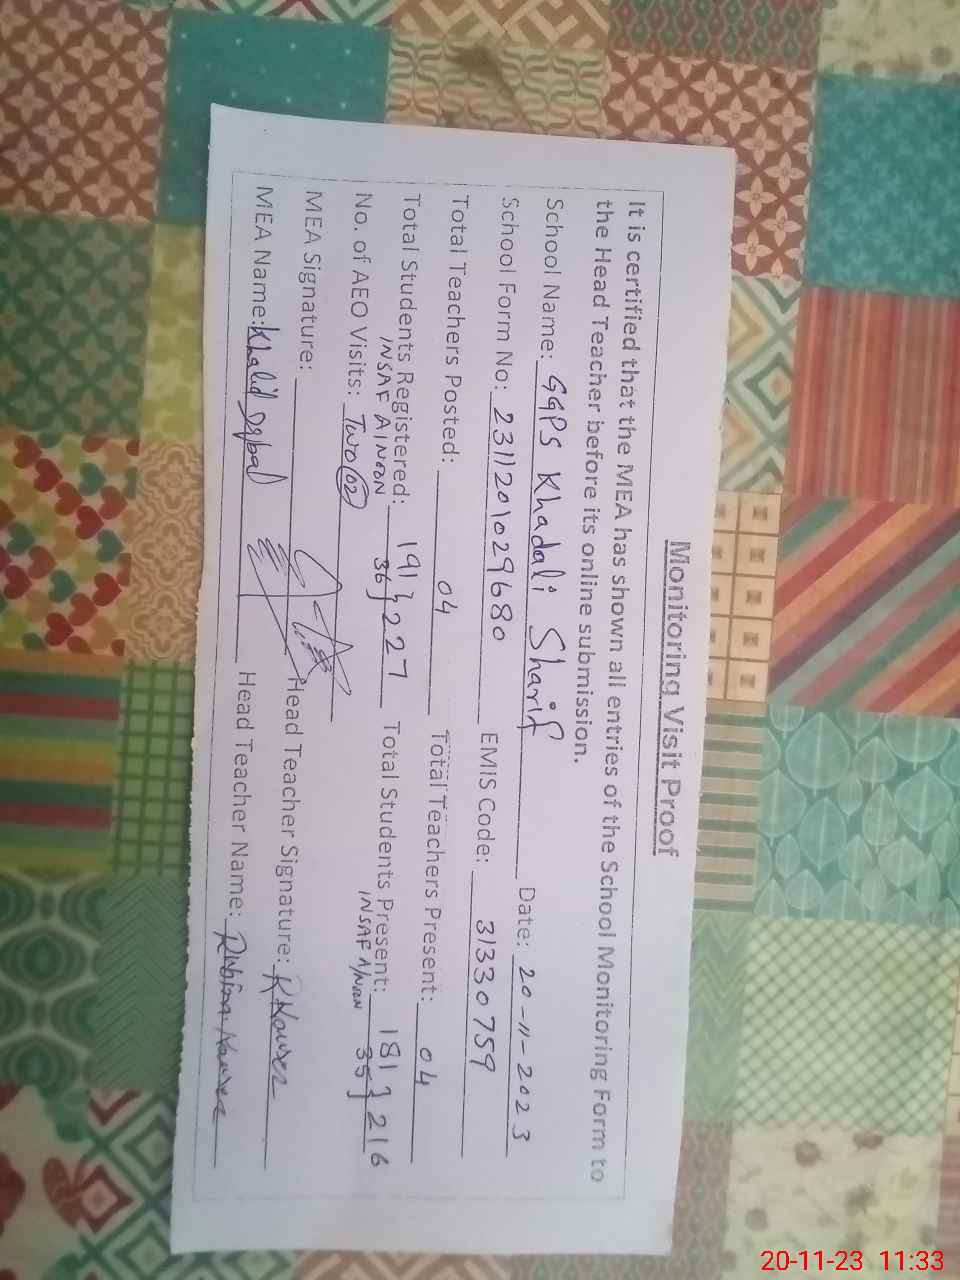 Monitoring Visit Proof
It is certified that the MEA has shown all entries of the School Monitoring Form to
the Head Teacher before its online submission.
School Name: GGPS Khadali Sharif Date: 20-11-2023
School Form No: 2311201029680 EMIS Code: 31330759
Total Teachers Posted: 04 Total Teachers Present: 04
Total Students Registered: 191 } 227 Total Students Present: 181 } 216
INSAF A/NOON 36 INSAF A/Noon 35
No. of AEO Visits: Two (02)
MEA Signature: Head Teacher Signature: R Kouser
MEA Name: Khalid Iqbal Head Teacher Name: Rubina Kouser
20-11-23 11:33